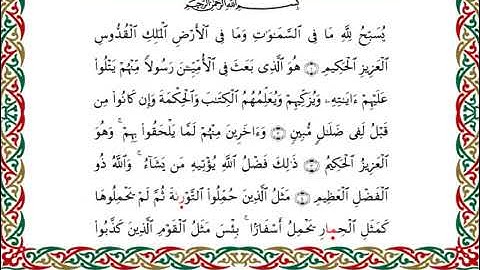 بِسْمِ اللَّهِ الرَّحْمَٰنِ الرَّحِيمِ
يُسَبِّحُ لِلَّهِ مَا فِى السَّمَٰوَٰتِ وَمَا فِى الْأَرْضِ الْمَلِكِ الْقُدُّوسِ
الْعَزِيزِ الْحَكِيمِ ۝ هُوَ الَّذِى بَعَثَ فِى الْأُمِّيِّـۧنَ رَسُولًا مِّنْهُمْ يَتْلُوا۟
عَلَيْهِمْ ءَايَٰتِهِۦ وَيُزَكِّيهِمْ وَيُعَلِّمُهُمُ الْكِتَٰبَ وَالْحِكْمَةَ وَإِن كَانُوا۟ مِن
قَبْلُ لَفِى ضَلَٰلٍ مُّبِينٍ ۝ وَءَاخَرِينَ مِنْهُمْ لَمَّا يَلْحَقُوا۟ بِهِمْ ۚ وَهُوَ
الْعَزِيزُ الْحَكِيمُ ۝ ذَٰلِكَ فَضْلُ اللَّهِ يُؤْتِيهِ مَن يَشَآءُ ۚ وَاللَّهُ ذُو
الْفَضْلِ الْعَظِيمِ ۝ مَثَلُ الَّذِينَ حُمِّلُوا۟ التَّوْرَىٰةَ ثُمَّ لَمْ يَحْمِلُوهَا
كَمَثَلِ الْحِمَارِ يَحْمِلُ أَسْفَارًۢا ۚ بِئْسَ مَثَلُ الْقَوْمِ الَّذِينَ كَذَّبُوا۟